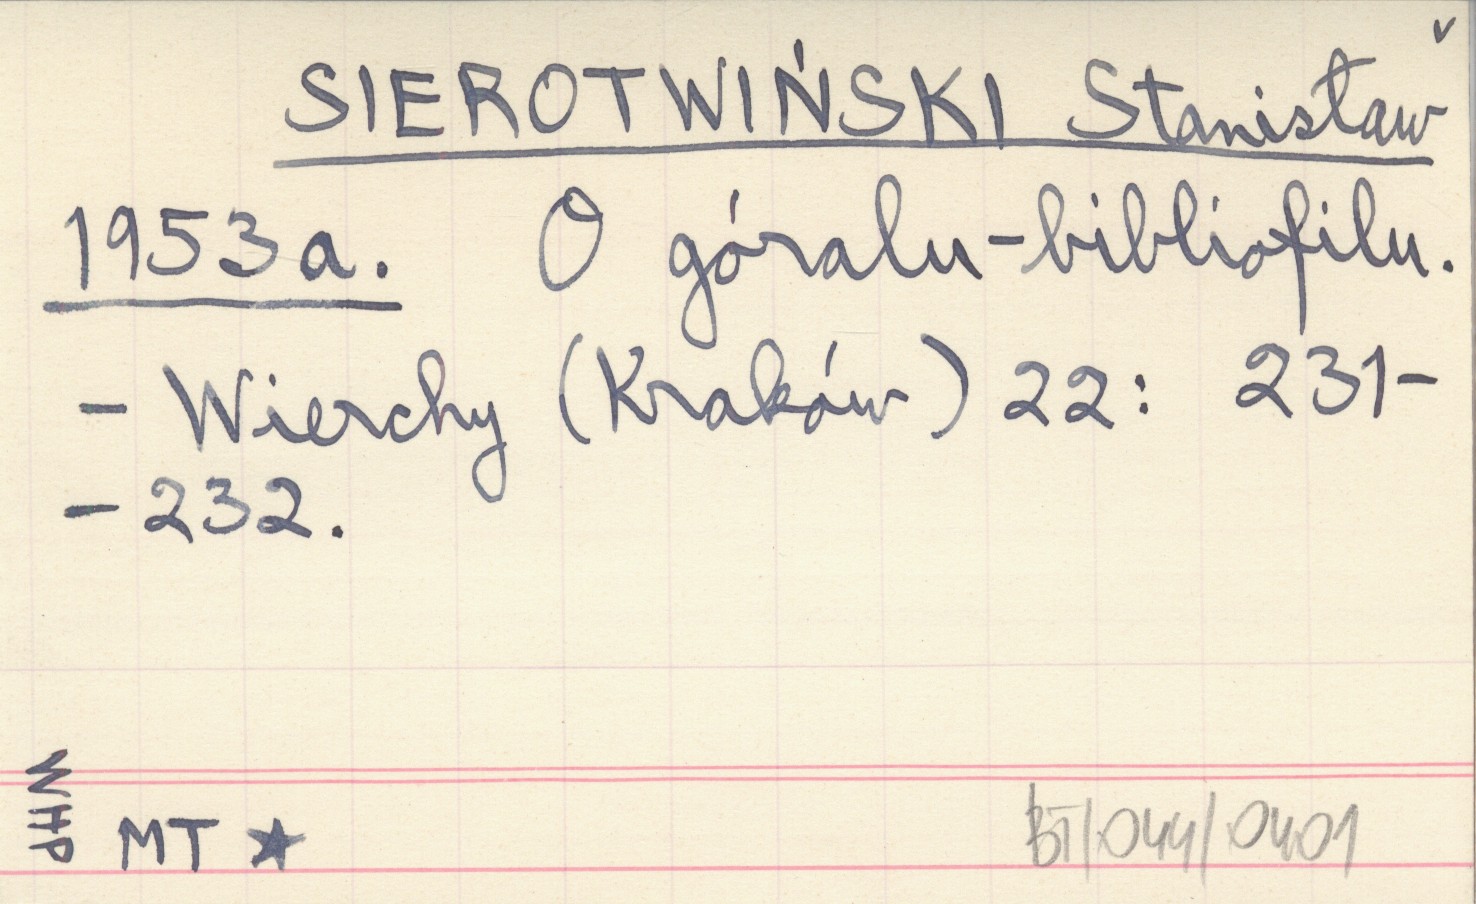 v
SIEROTWIŃSKI Stanisław
1953a. O góralu-bibliofilu.
- Wierchy (Kraków) 22: 231-
- 232.
WHP
MT ★
BT/044/0401